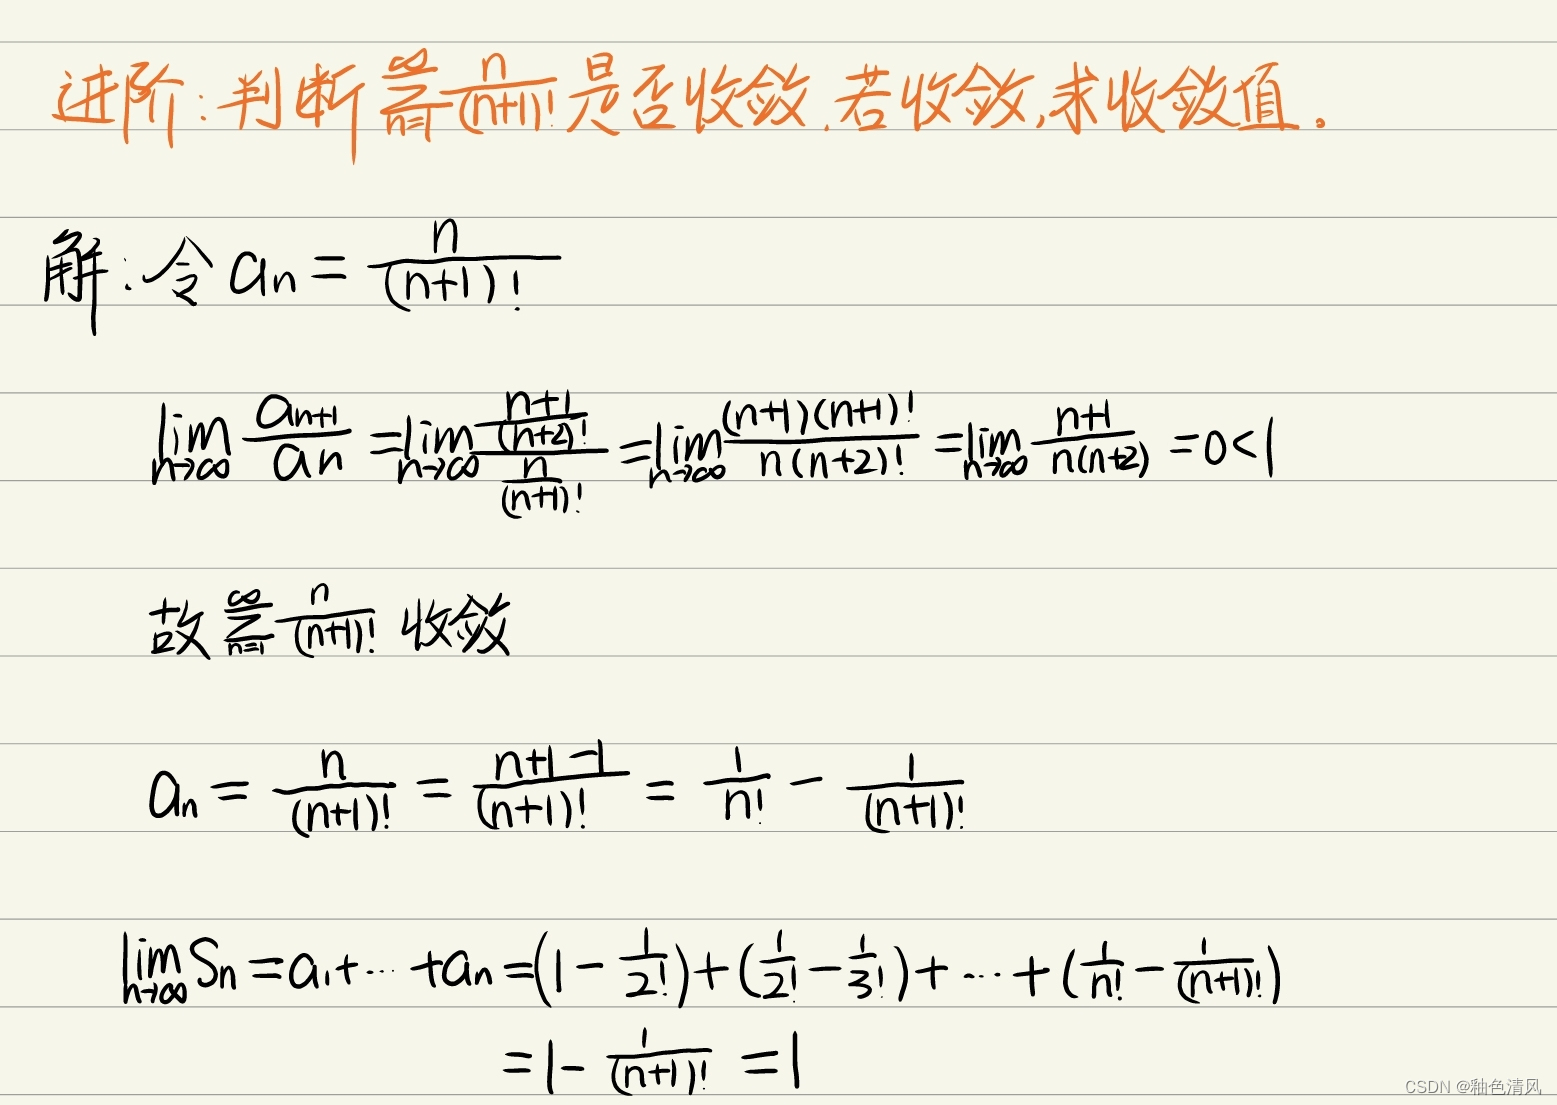 进阶:判断 $\sum_{n=1}^{\infty}\frac{n}{(n+1)!}$ 是否收敛,若收敛,求收敛值。
解:令 $a_n=\frac{n}{(n+1)!}$
$\lim_{n\to\infty}\frac{a_{n+1}}{a_n}=\lim_{n\to\infty}\frac{\frac{n+1}{(n+2)!}}{\frac{n}{(n+1)!}}=\lim_{n\to\infty}\frac{(n+1)(n+1)!}{n(n+2)!}=\lim_{n\to\infty}\frac{n+1}{n(n+2)}=0<1$
故 $\sum_{n=1}^{\infty}\frac{n}{(n+1)!}$ 收敛
$a_n=\frac{n}{(n+1)!}=\frac{n+1-1}{(n+1)!}=\frac{1}{n!}-\frac{1}{(n+1)!}$
$\lim_{n\to\infty}S_n=a_1+\cdots+a_n=(1-\frac{1}{2!})+(\frac{1}{2!}-\frac{1}{3!})+\cdots+(\frac{1}{n!}-\frac{1}{(n+1)!})$
$=1-\frac{1}{(n+1)!}=1$
CSDN @釉色清风